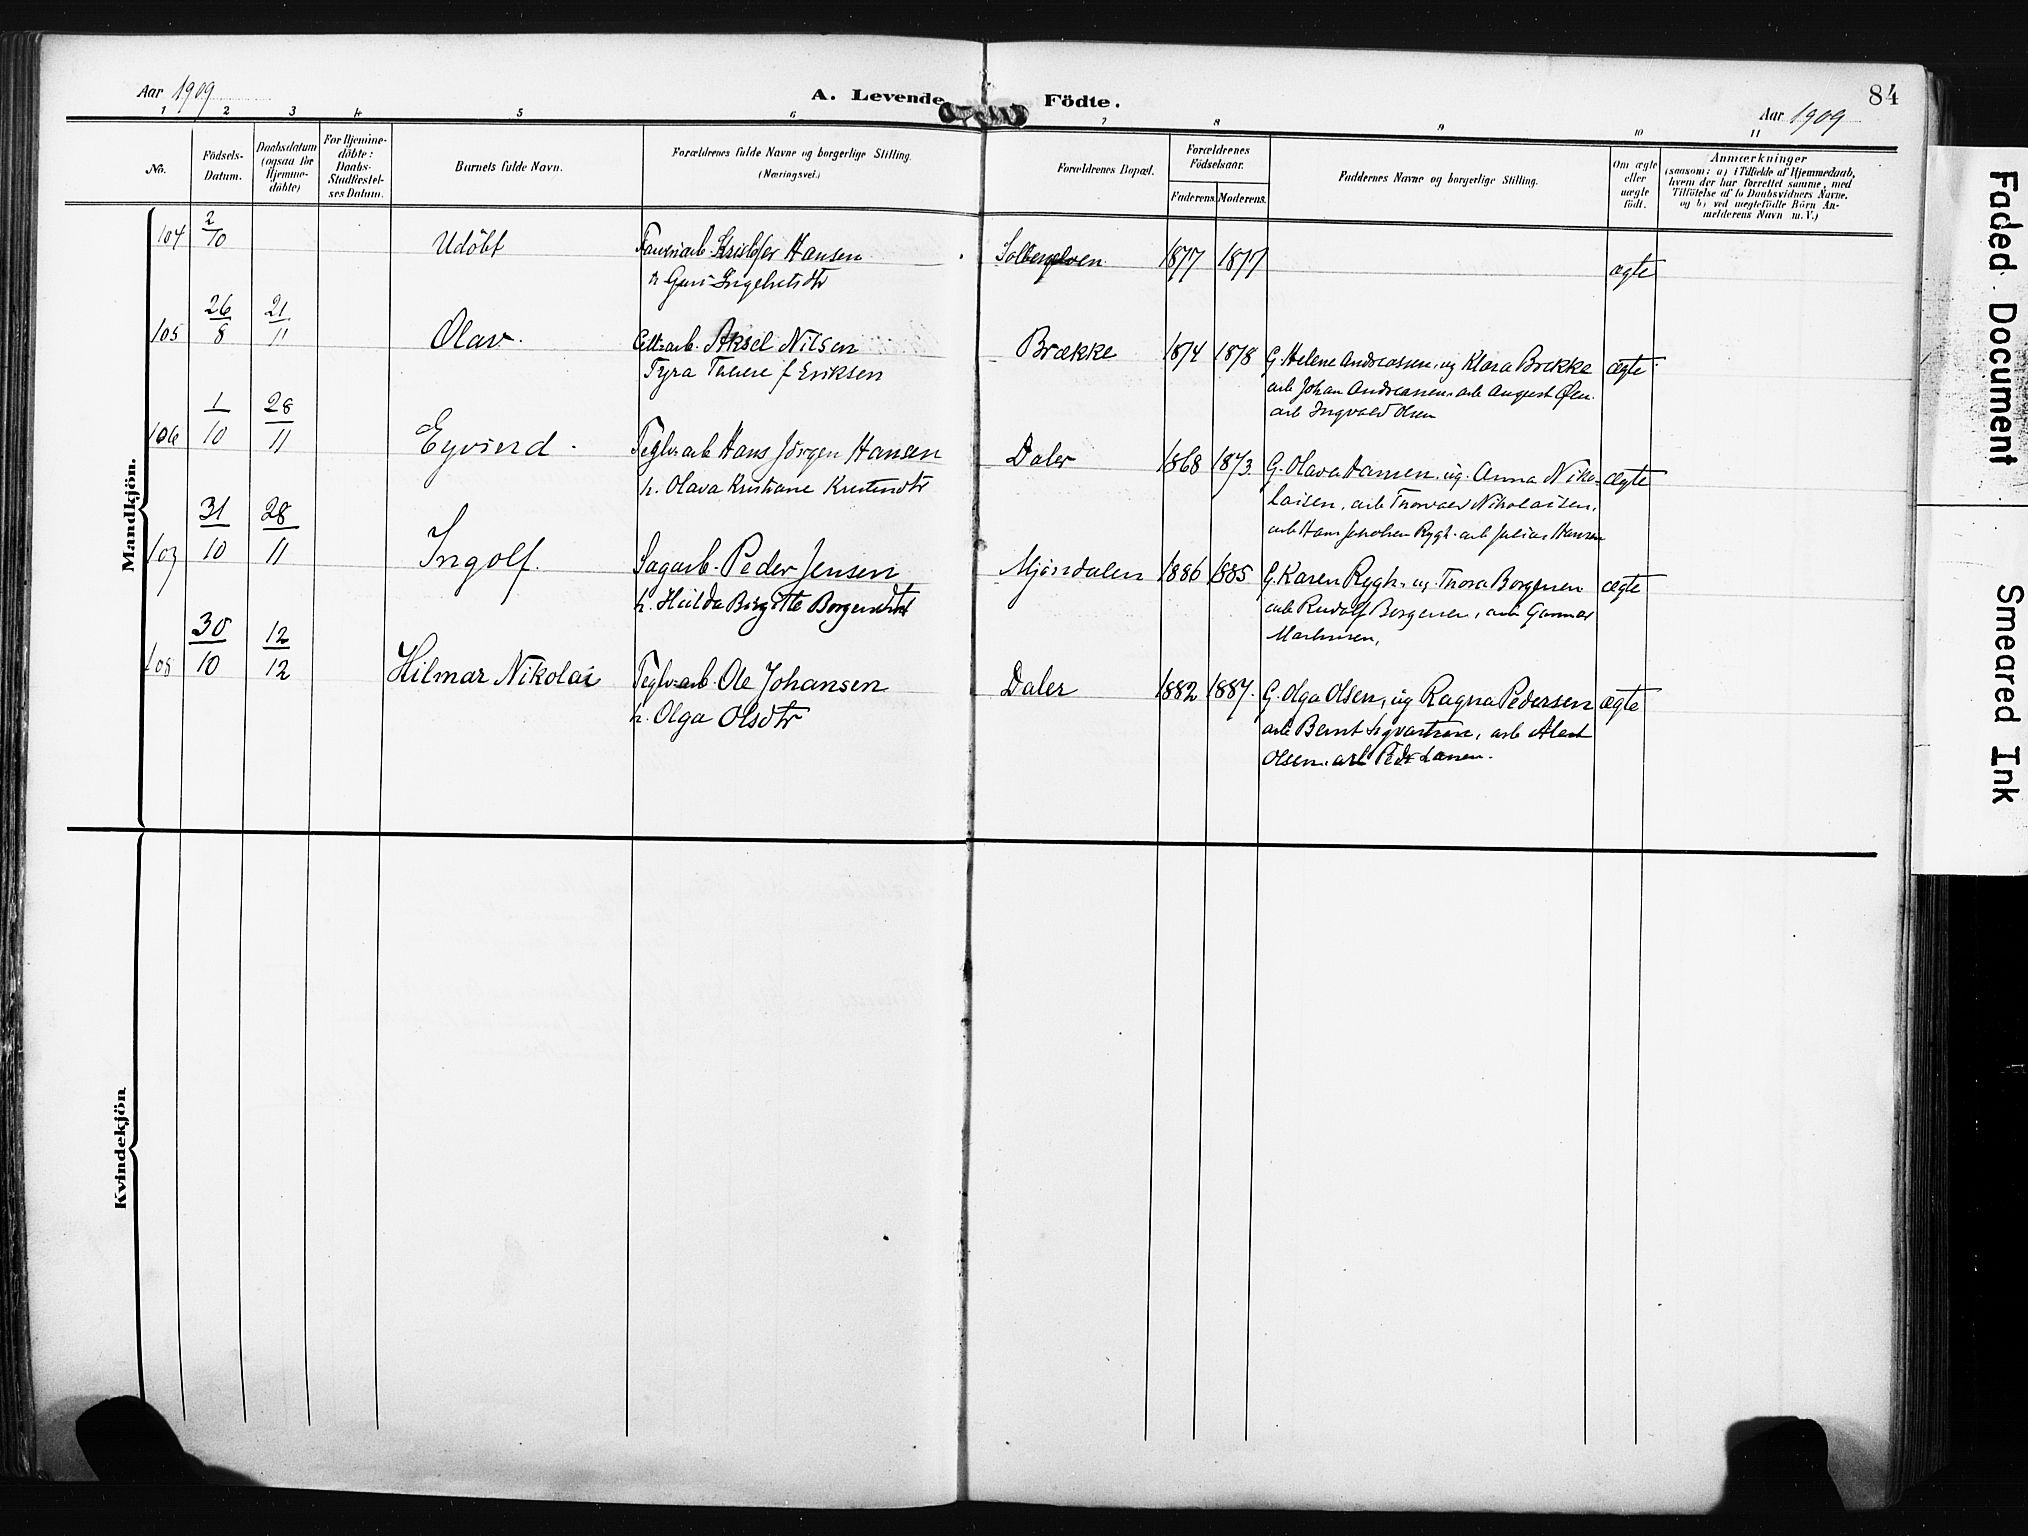 Aar 1909
A. Levende Födte.
84
Aar 1909
1 2 3 4 5 6 7 8 9 10 11
No.
Födsels-
Datum.
Daabsdatum
(ogsaa för
Hjemme-
döbte)
For Hjemme-
döbte:
Daabs-
Stadfæstel-
ses Datum.
Barnets fulde Navn.
Forældrenes fulde Navne og borgerlige Stilling.
(Næringsvei.)
Forældrenes Bopæl.
Forældrenes
Födselsaar.
Faderens. Moderens.
Faddernes Navne og borgerlige Stilling.
Om ægte
eller
uægte
födt.
Anmærkninger
(saasom: a) i Tilfælde af Hjemmedaab,
hvem der har forrettet samme, med
Tilföielse af to Daabsvidners Navne.
og b) ved uægtefödte Börn An-
melderens Navn m. V.)
Mandkjön.
104 2/10 Udöbt Kristofer Hansen Solbergelven 1877 1877 ægte
h.
105 26/8 21/11 Olav. Aksel Nilsen Brække 1874 1878 G. Helene Andreassen, ug Klara Brække ægte
Tyra f Eriksen arb Johan Andreassen, arb August
arb Ingvald Olsen
106 1/10 28/11 Eyvind Teglv.arb Hans Jörgen Hansen Daler 1868 1873 G. Olava Hansen, ug. Anna Niko- ægte
h. Olava Kristiane laisen, arb Thorvald Nikolaisen,
arb Hans Rygh. arb Julius Hansen
107 31/10 28/11 Ingolf. Sagarb. Peder Jensen Mjöndalen 1886 1885 G. Karen Rygh. ug. Thora Borgersen ægte
h. Hulda Birgitte Borgersdtr arb Rudolf Borgersen, arb Gunnar
108 30/10 12/12 Hilmar Nikolai Teglv.arb. Ole Johansen Daler 1882 1887. G. Olga Olsen, ug Ragna Pedersen ægte
h. Olga Olsdtr arb Bernt arb
Olsen. arb
Kvindekjön
Faded Document
Smeared Ink